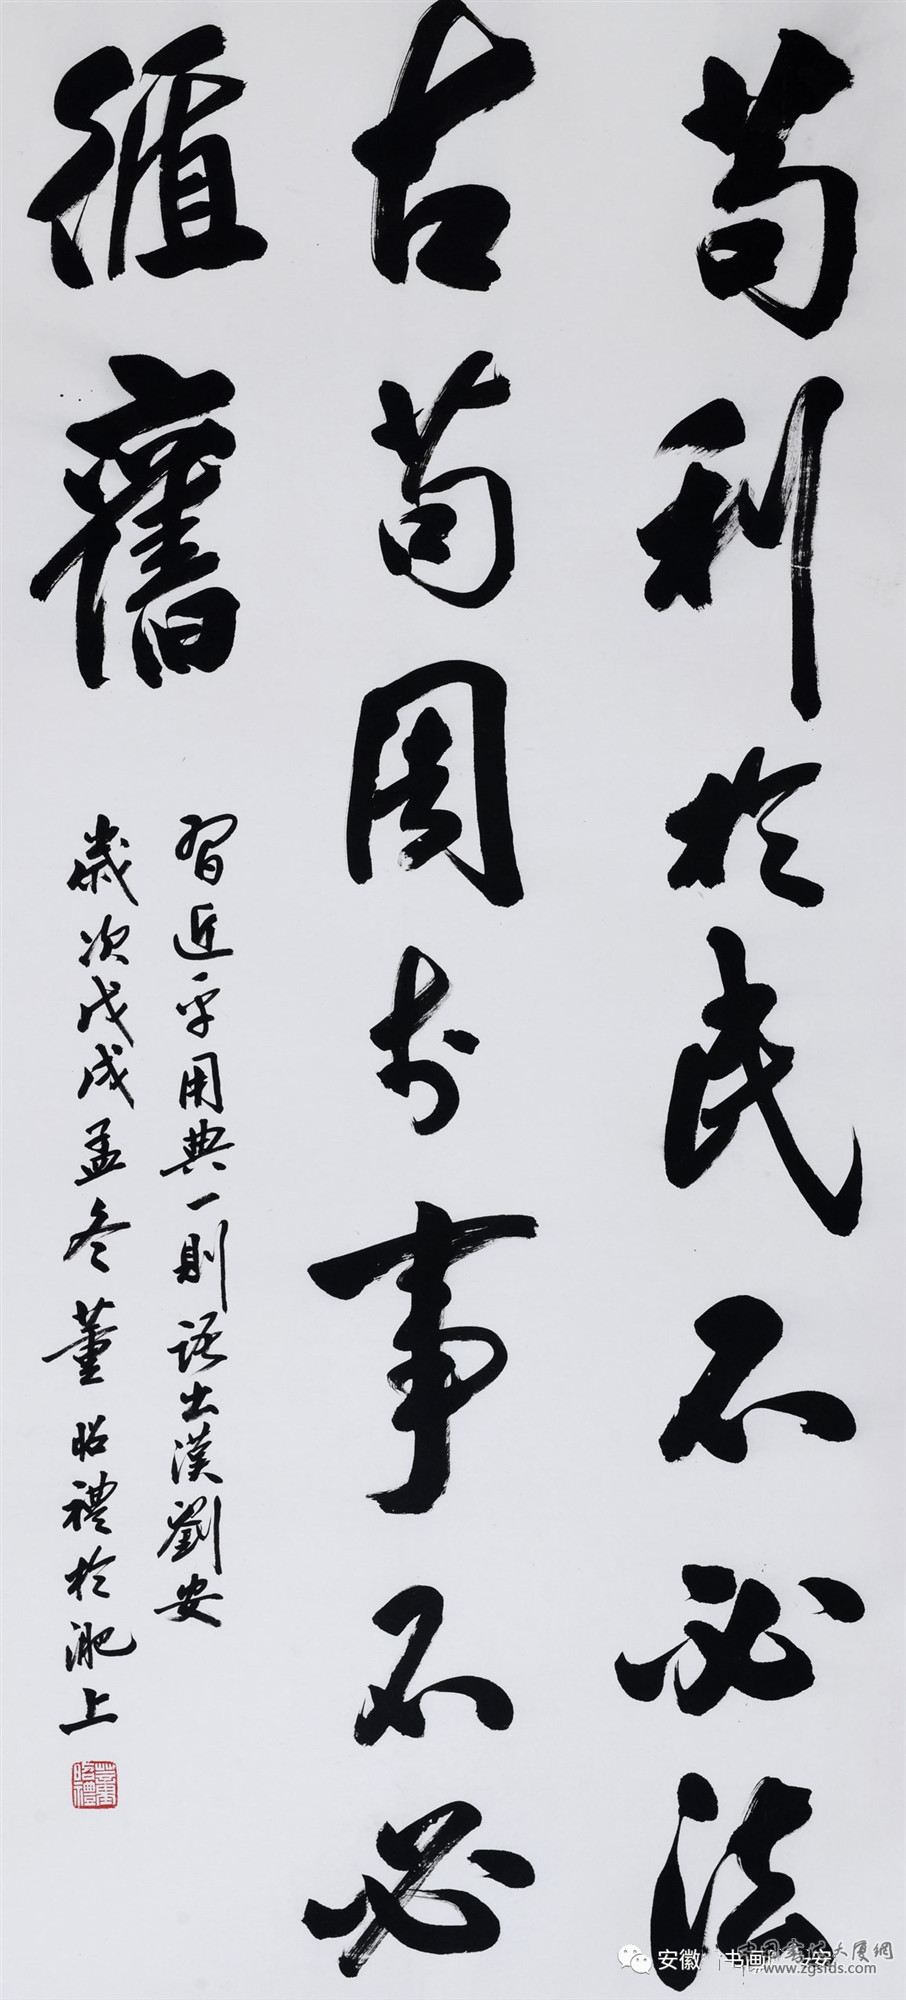 苟利於民不必法
古苟周於事不必
循舊
習近平用典一則語出漢劉安
歲次戊戌孟冬董昭禮於淝上
董昭禮
安徽 书画
www.zgsfds.com